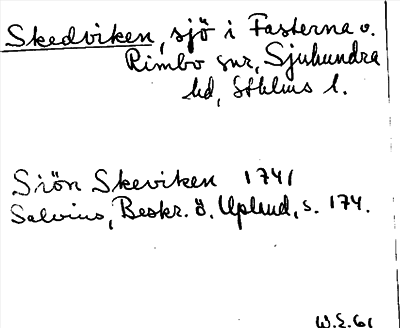 Skedviken, sjö i Fasterna o.
Rimbo snr, Sjuhundra
hd, Sthlms l.
Siön Skeviken 1741
Salvius, Beskr. ö. Uplnd, s. 174.
W.E. 61